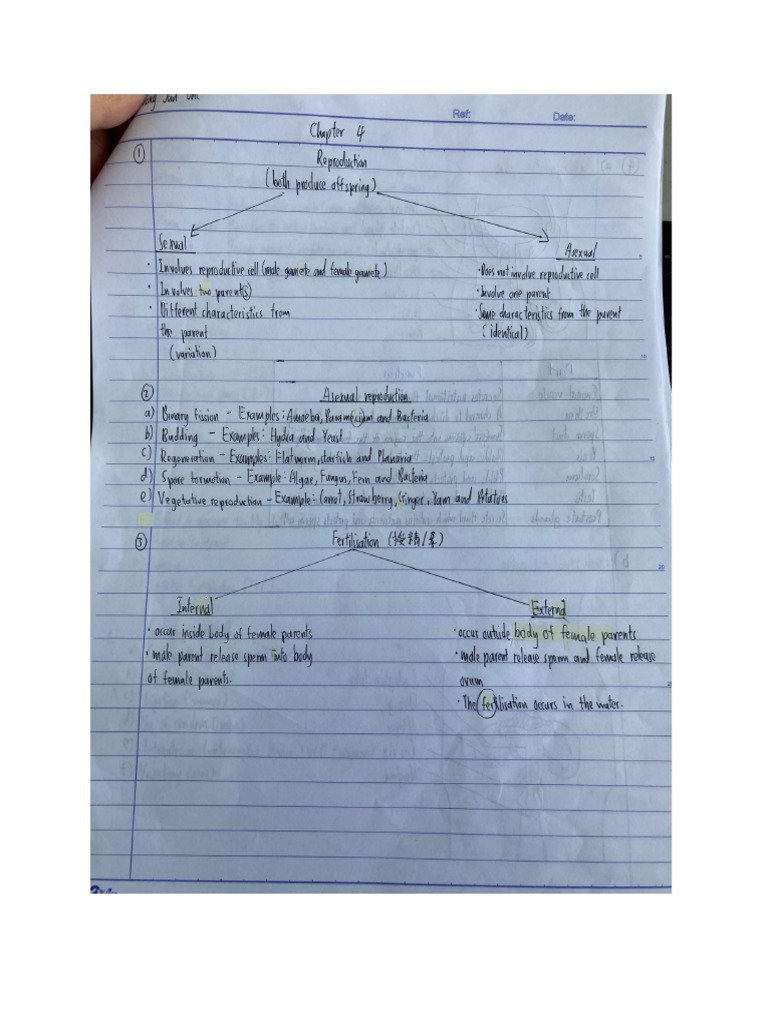 Ref: Date:
Chapter 4
① Reproduction
(both produce offspring)
Sexual
Asexual
· Involves reproductive cell (male gamete and female gamete)
· Does not involve reproductive cell
· Involves two parent(s)
· Involve one parent
· Different characteristics from
· Same characteristics from the parent
the parent
(identical)
(variation)
② Asexual reproduction
a) Binary fission - Examples: Amoeba, Paramecium and Bacteria
b) Budding - Examples: Hydra and Yeast
c) Regeneration - Examples: Flatworm, starfish and Planaria
d) Spore formation - Example: Algae, Fungus, Fern and Bacteria
e) Vegetative reproduction - Example: Carrot, Strawberry, Ginger, Yam and Potatoes
③ Fertilisation
Internal
External
· occur inside body of female parents
· occur outside body of female parents
· male parent release sperm into body
· male parent release sperm and female release
of female parents.
ovum
· The fertilisation occurs in the water.